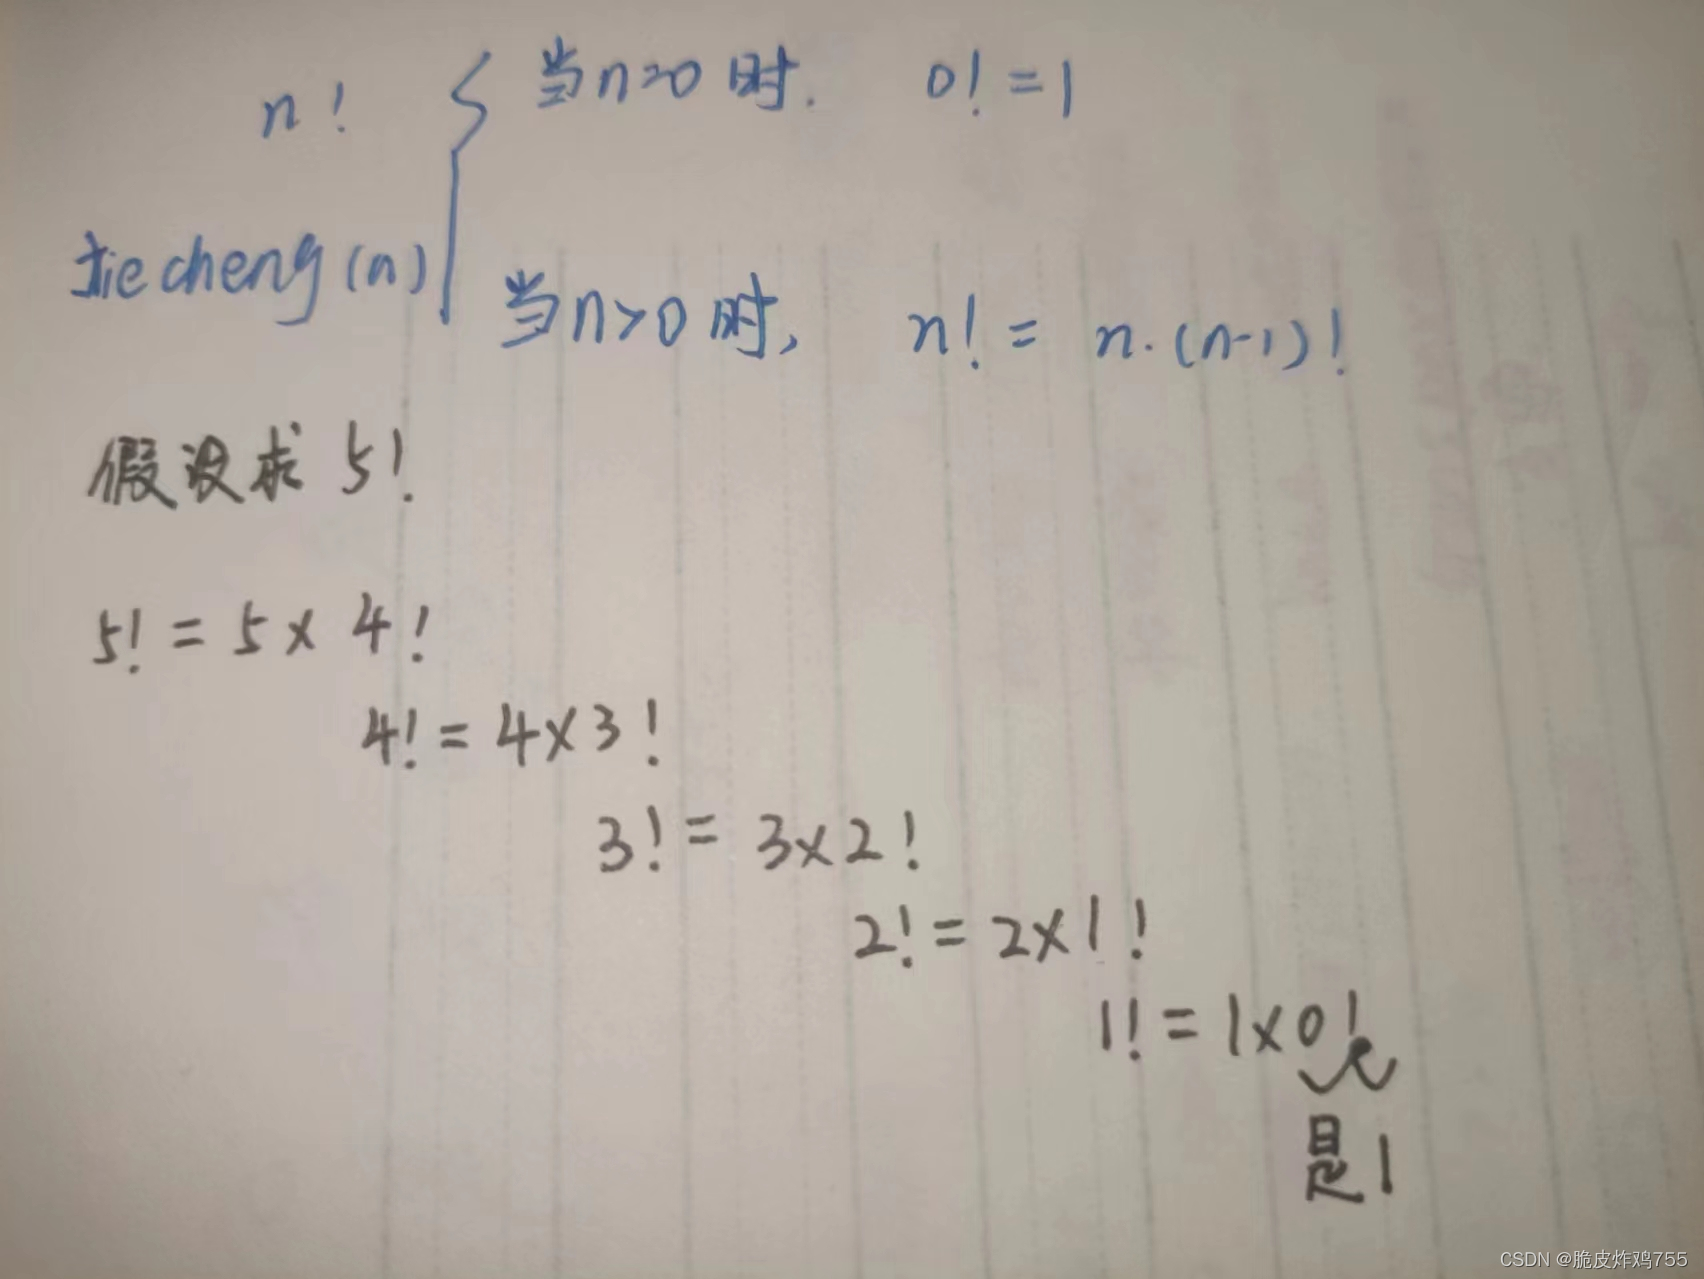 n! 当n=0时. 0!=1
jiecheng(n) 当n>0时, n! = n·(n-1)!
假设求 5!
5! = 5 × 4!
4! = 4×3!
3! = 3×2!
2! = 2×1!
1! = 1×0!
是1
CSDN @脆皮炸鸡755